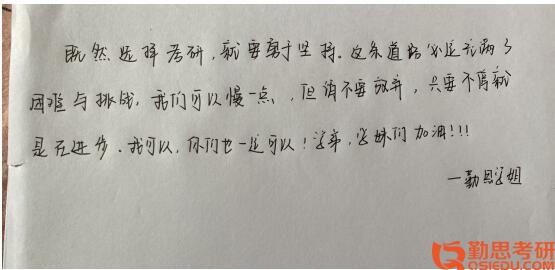 既然选择考研，就要勇于坚持。这条道路必定充满了
困难与挑战，我们可以慢一点，但请不要放弃，只要不停就
是在进步。我可以，你们也一定可以！学弟，学妹们加油!!!
—勤思学姐
勤思考研
QSIEDU.COM